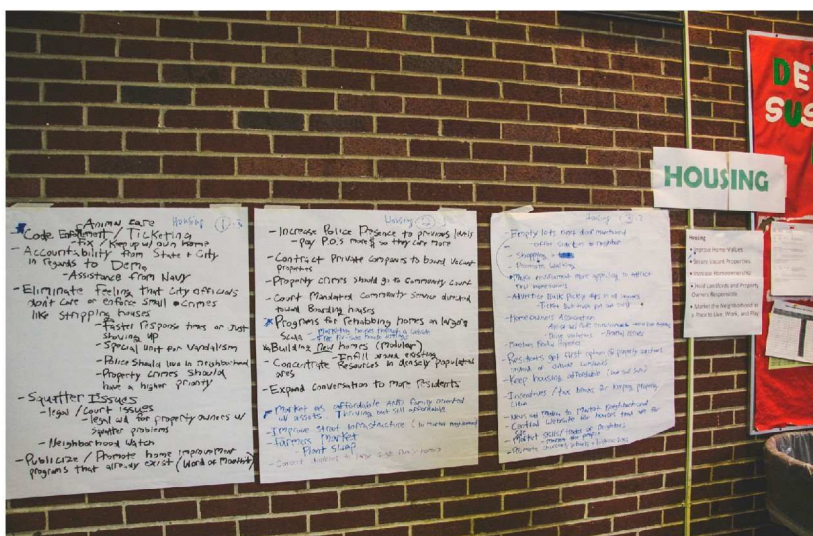 Animal care
Housing 1.3
- Code Enforcement / Ticketing
- Fix / Keep up w/ own home
- Accountability from State + City
in regards to Demo
- Assistance from Navy
- Eliminate feeling that City officials
don't care or enforce small crimes
like stripping houses
- faster response times or Just
showing up
- Special unit for Vandalism
- Police should live in neighborhood
- Property crimes should
have a higher priority
- Squatter Issues
- legal / court issues
- legal aid for property owners w/
squatter problems
- Neighborhood watch
- Publicize / Promote home improvement
programs that already exist (Word of Mouth)
Housing 2
- Increase Police Presence to previous levels
- pay P.O.s more $ so they care more
- Contract Private companies to board vacant
properties
- Property crimes should go to Community Court
- Court Mandated Community Service directed
toward Boarding houses
Programs for rehabbing homes on larger
scale
- Building New homes (Modular)
- Infill around existing
- Concentrate Resources in densely populated
areas
- Expand Conversation to More Residents
- Market as affordable and family oriented
w/ assets Thriving but still affordable
- Improve street Infrastructure
- Farmers Market
- Plant Swap
Housing
- Empty lots need be maintained
- Shopping
- Promote Walking
- Make environment more appealing to attract
new homeowners
- Advertise Bulk Pickup days
- Homeowners Association
- Residents get first option @ property auctions
instead of outside companies
- Keep housing affordable
- Incentives / tax breaks for keeping property
- Central Website for houses that are for
sale
HOUSING
Housing
• Improve Home Values
• Secure Vacant Properties
• Increase Homeownership
• Hold Landlords and Property
Owners Responsible
• Market the Neighborhood as
a Place to Live, Work, and Play
DE
SUS